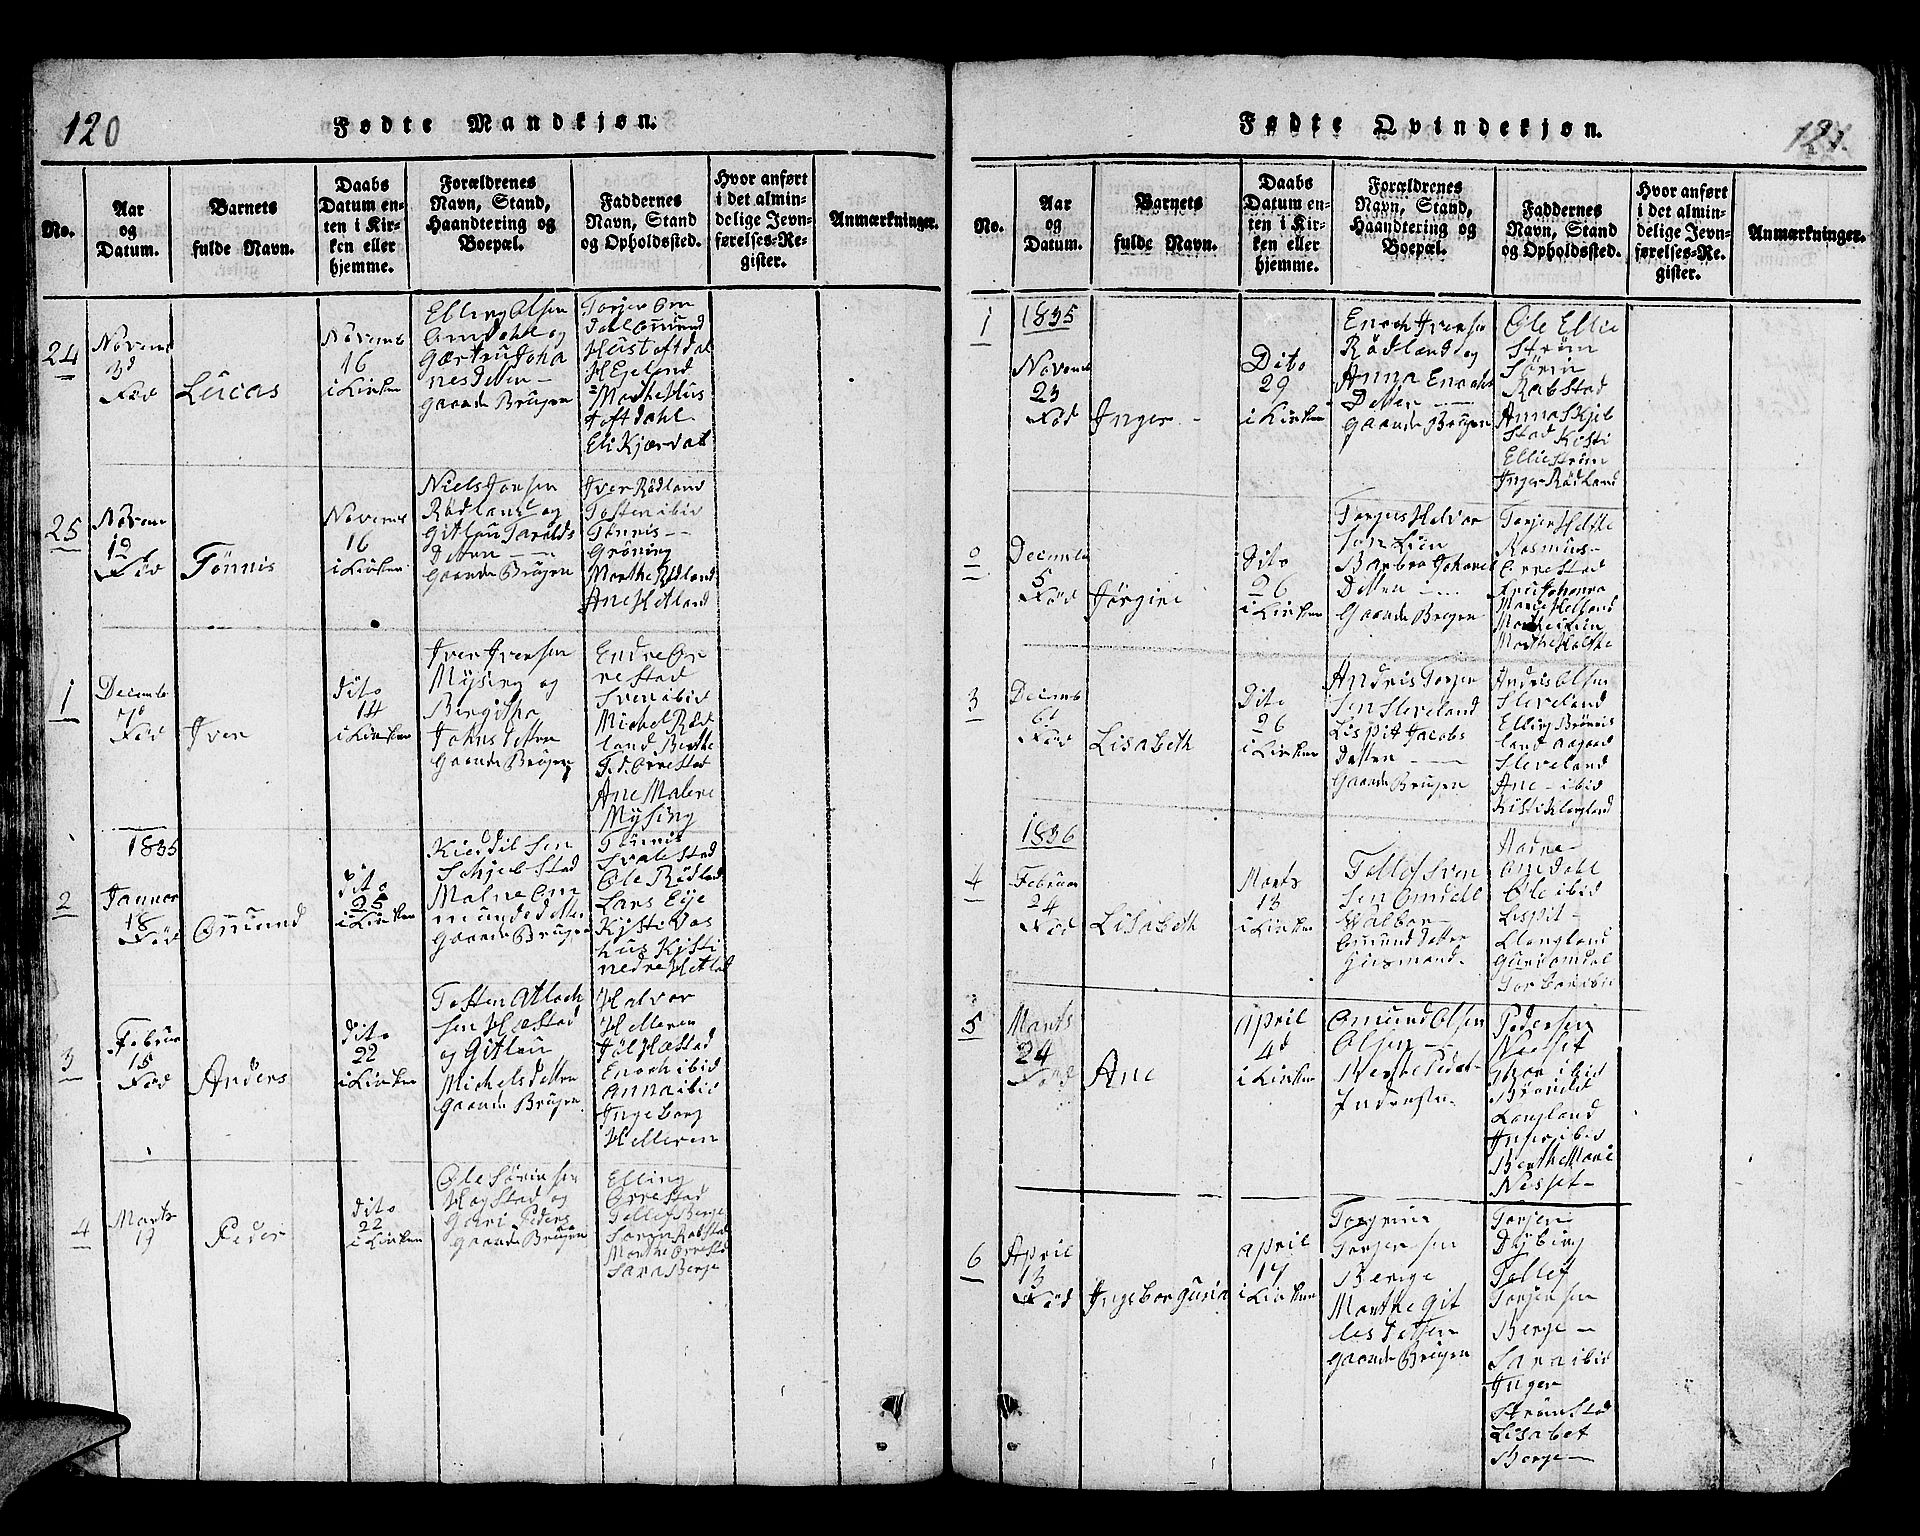 120
Fødte Mandkjøn.
No.
Aar
og
Datum.
Barnets
fulde Navn.
Daabs
Datum en-
ten i Kir-
ken eller
hjemme.
Forældrenes
Navn, Stand,
Haandtering og
Boepæl.
Faddernes
Navn, Stand
og Opholdssted.
Hvor anført
i det almin-
delige Jevn-
førelses-Re-
gister.
Anmærkninger.
24
Novemb
3d
Fød
Lucas
Novemb
16
i Kirken
Elling Olsen
Omdahl og
Gærtru Joha
nes Detter —
Gaarde Brugen
Torjer Om
Dal Omund
Hustoftdal
H Egelend
Marthe Hus
toftdahl
Eli Kjærdal
25
Novem
12
Fød
Tönnis
Novemb
16
i Kirken
Niels Jonsen
Rødland og
Gitleu Tarolds
Detter — —
Gaarde Brugen
Iver Rødland
Tosten ibid
Tönnis —
Gröning
Marthe Rødland
Ane Hetland
1
Decemb
7d
Fød
Iver
Dito
14
i Kirken
Iver Iversen
Mysing og
Bergitha
Johns Detter
Gaarde Brugen
Endre Or
restad
Sven ibid
Michel Rød
land Berthe
T.d. Orrestad
Ane Malene
Mysing
1835
2
Januar
18
Fød
Omund
Dito
25
i Kirken
Kieddil Sen
Schjebstad
Malne Om
munds detter
Gaarde Brugen
Tönnis
Svalestad
Ole Rødland
Lars Eye
Kisti Vas
hus Kisti
nedre Hetland
3
Februar
15
Fød
Anders
Dito
22
i Kirken
Tosten Atlach
sen Hæstad
og Gitleu
Michels detter
Gaarde Brugen
Halvor
Helleren
Jöl Hæstad
Enoch ibid
Anna ibid
Ingeborg
Helleren
4
Marts
19
Peder
Dito
22
i Kirken
Ole Sörensen
Hogstad og
Gari Peders
Gaarde Brugen
Elling
Orrestad
Tollef Berge
Søren Rabstad
Marthe Orrestad
Sara Berge
121.
Fødte Qvindekjøn.
No.
Aar
og
Datum.
Barnets
fulde Navn.
Daabs
Datum en-
ten i Kir-
ken eller
hjemme.
Forældrenes
Navn, Stand,
Haandtering og
Boepæl.
Faddernes
Navn, Stand
og Opholdssted.
Hvor anført
i det almin-
delige Jevn-
førelses-Re-
gister.
Anmærkninger.
1
1835
Novemb
23
Fød
Inger
Dito
29
i Kirken
Enoch Iversen
Rødland og
Anna Enochs
Detter —
Gaarde Brugen
Ole Ellie
Ström
Sörin
Rabstad
Anna Skjeb
stad Kisti
Ellieström
Inger Rødland
Decemb
5
Fød
Jørgine
Dito
26
i Kirken
Torjus Halvor
son Lien
Barbro Johanes
Detter —
Gaarde Brugen
Torjer Helske
Rasmus
Orrestad
Marie Helland
Marthe Lien
Marthe Helske
3
Decemb
6d
Fød
Lisabeth
Dito
26
i Kirken
Andris Torjer
sen Sleveland
Lispit Jacobs
Detter —
Gaarde Brugen
Andris Olsen
Sleveland
Elling Brönnis
land Aagaad
Sleveland
Ane — ibid
Kisti Klungland
1836
4
Februar
24
Fød
Lisabeth
Marts
13
i Kirken
Tollef Sven
sen Omdall
Walbor —
Omund detter
Husmand.
Aadne
Omdahl
Ole ibid
Lispit —
Klungland
Guri Omdal
Torbor ibid
5
Marts
24
Fød
Ane
April
4d
i Kirken
Omund Olsen
Olsen —
Berthe Peders
Pedersen
Nesset
Thor ibid
Langland
Inger ibid
Berthe Marie
Nesset —
6
April
13
Fød
Ingeborg Guria
April
17
i Kirken
Torgrim
Torjersen
Berge
Marthe Git
les Detter
Gaarde Brugen
Torjer
Dybing
Tollef
Torjersen
Berge —
Sara ibid
Inger
Strömstad
Lisabet
Berge —